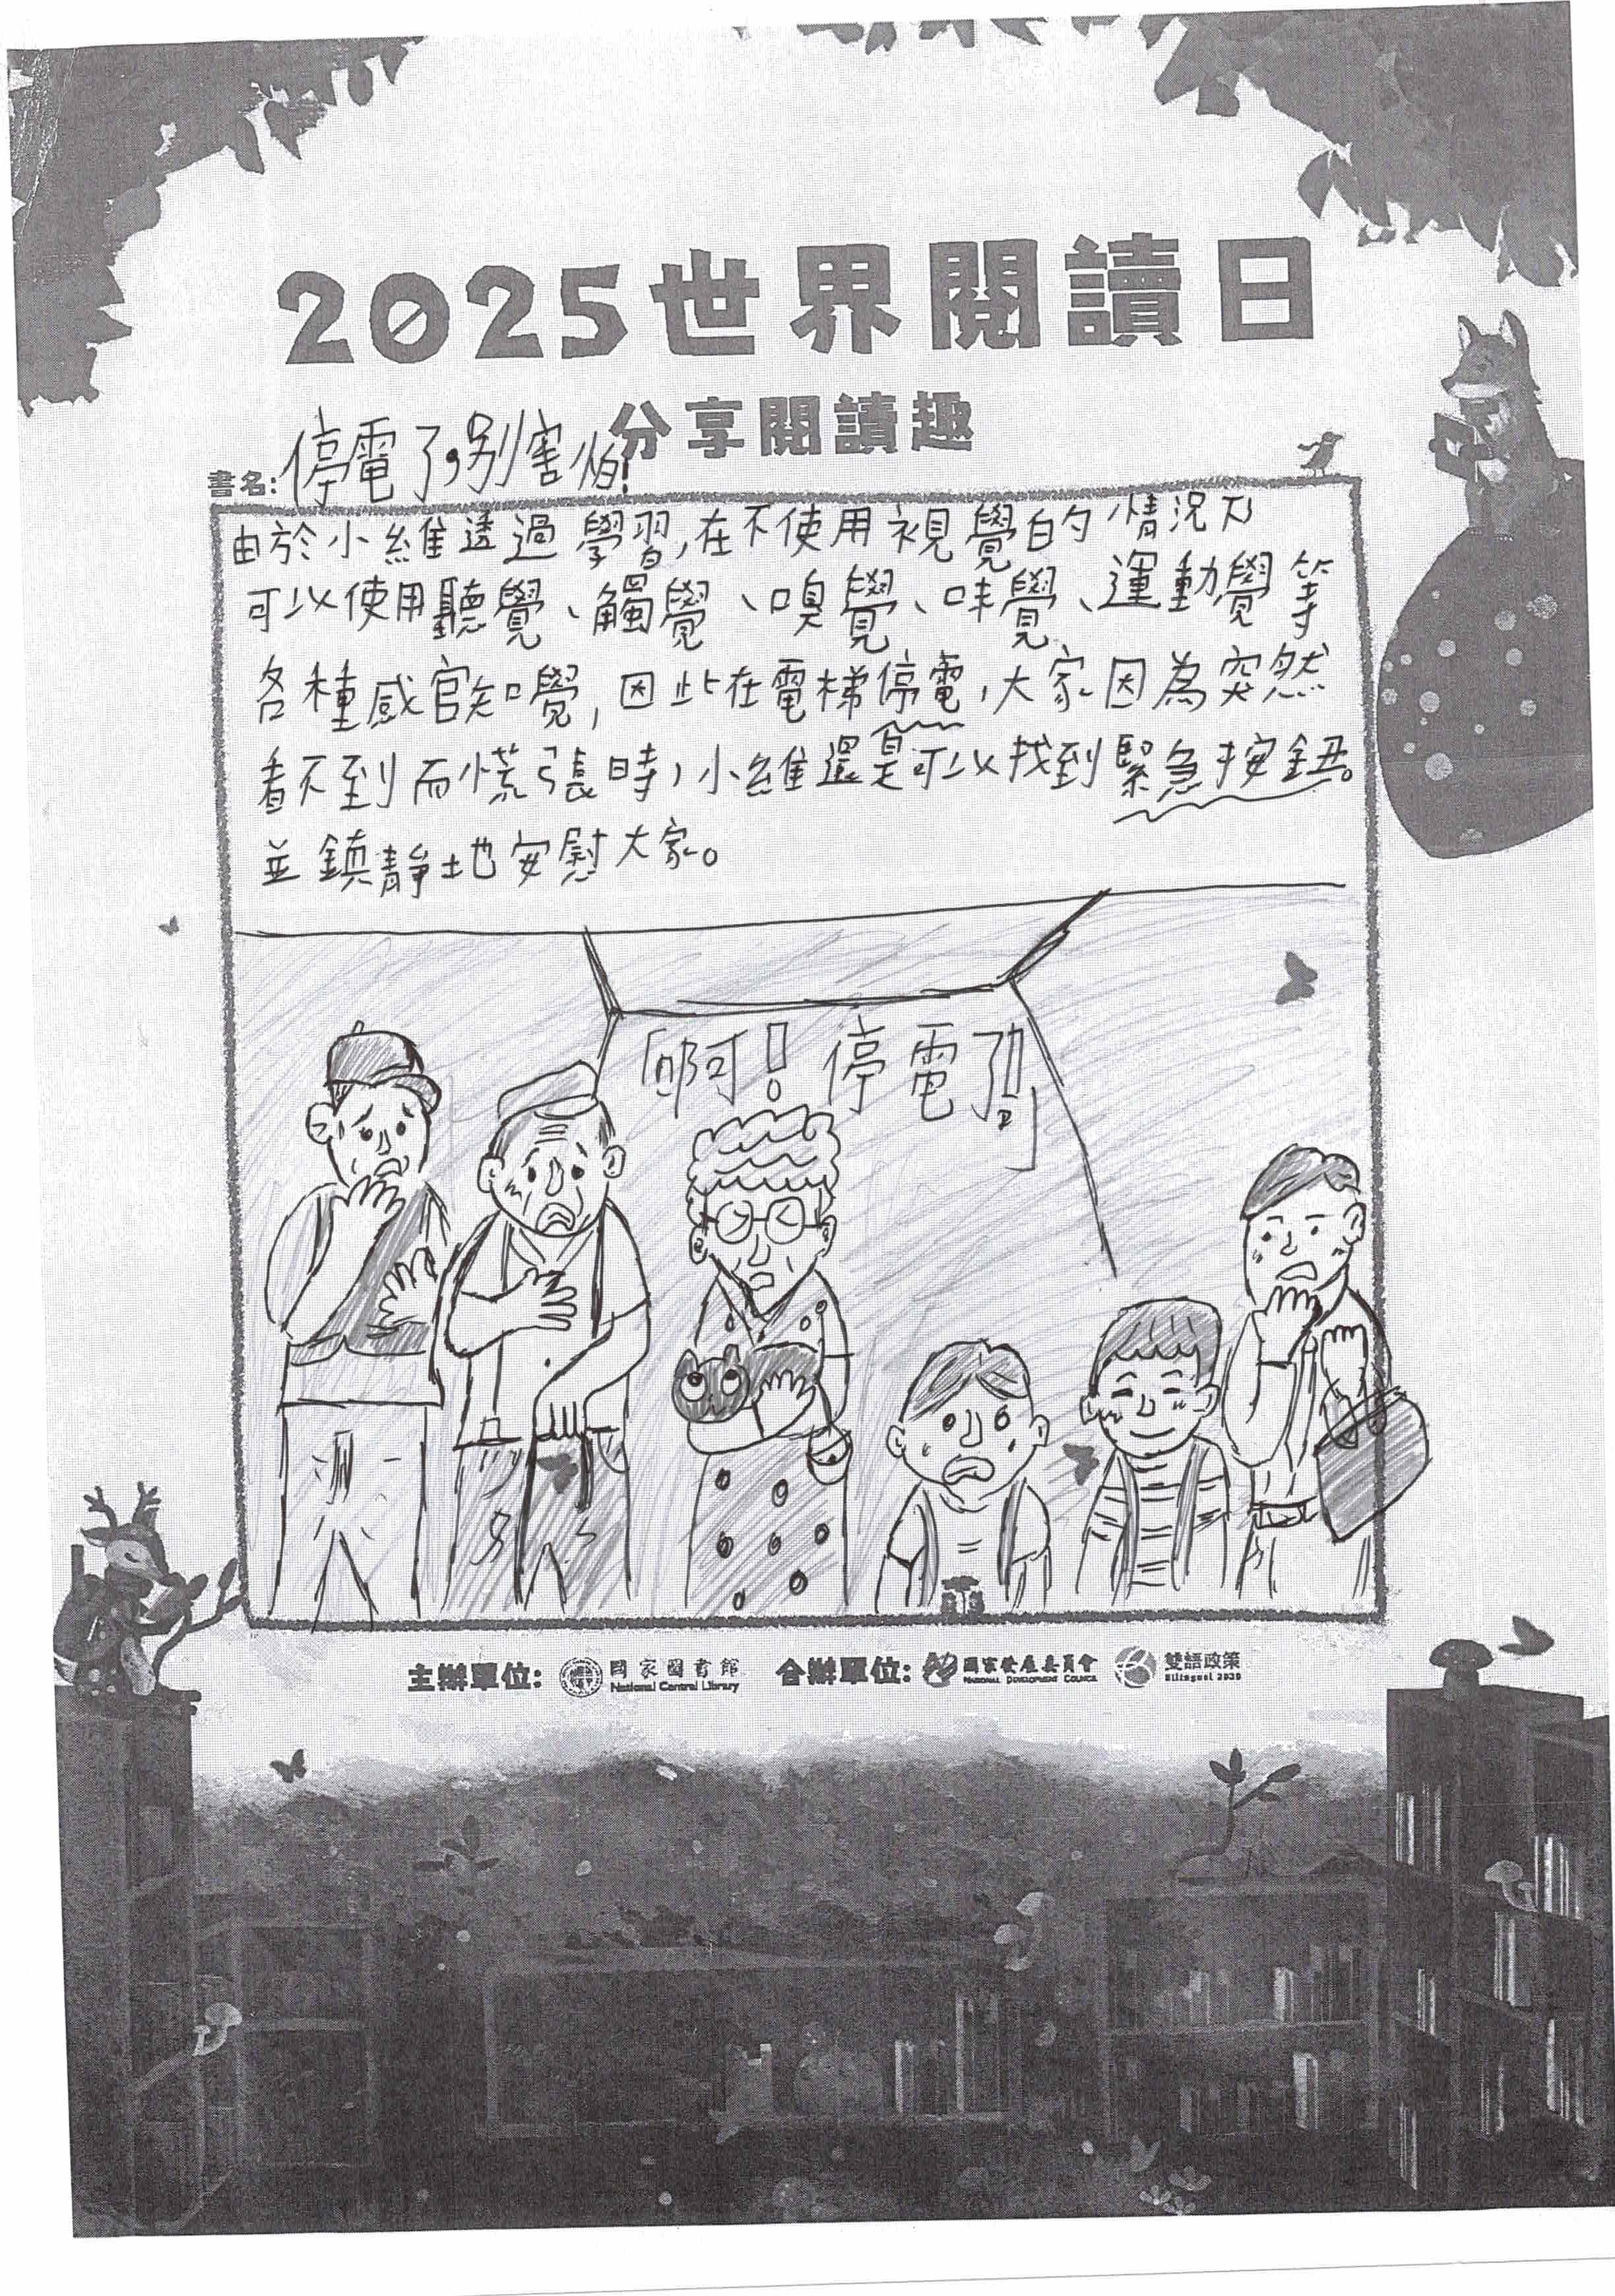 2025世界閱讀日
分享閱讀趣
書名:停電了,別害怕!
由於小維透過學習,在不使用視覺的情況下
可以使用聽覺、觸覺、嗅覺、味覺、運動覺等
各種感官知覺,因此在電梯停電,大家因為突然
看不到而慌張時,小維還是可以找到緊急按鈕。
並鎮靜地安慰大家。
「啊!停電了!!」
主辦單位: 國家圖書館 National Central Library 合辦單位: 國家發展委員會 NATIONAL DEVELOPMENT COUNCIL 雙語政策 Bilingual 2030